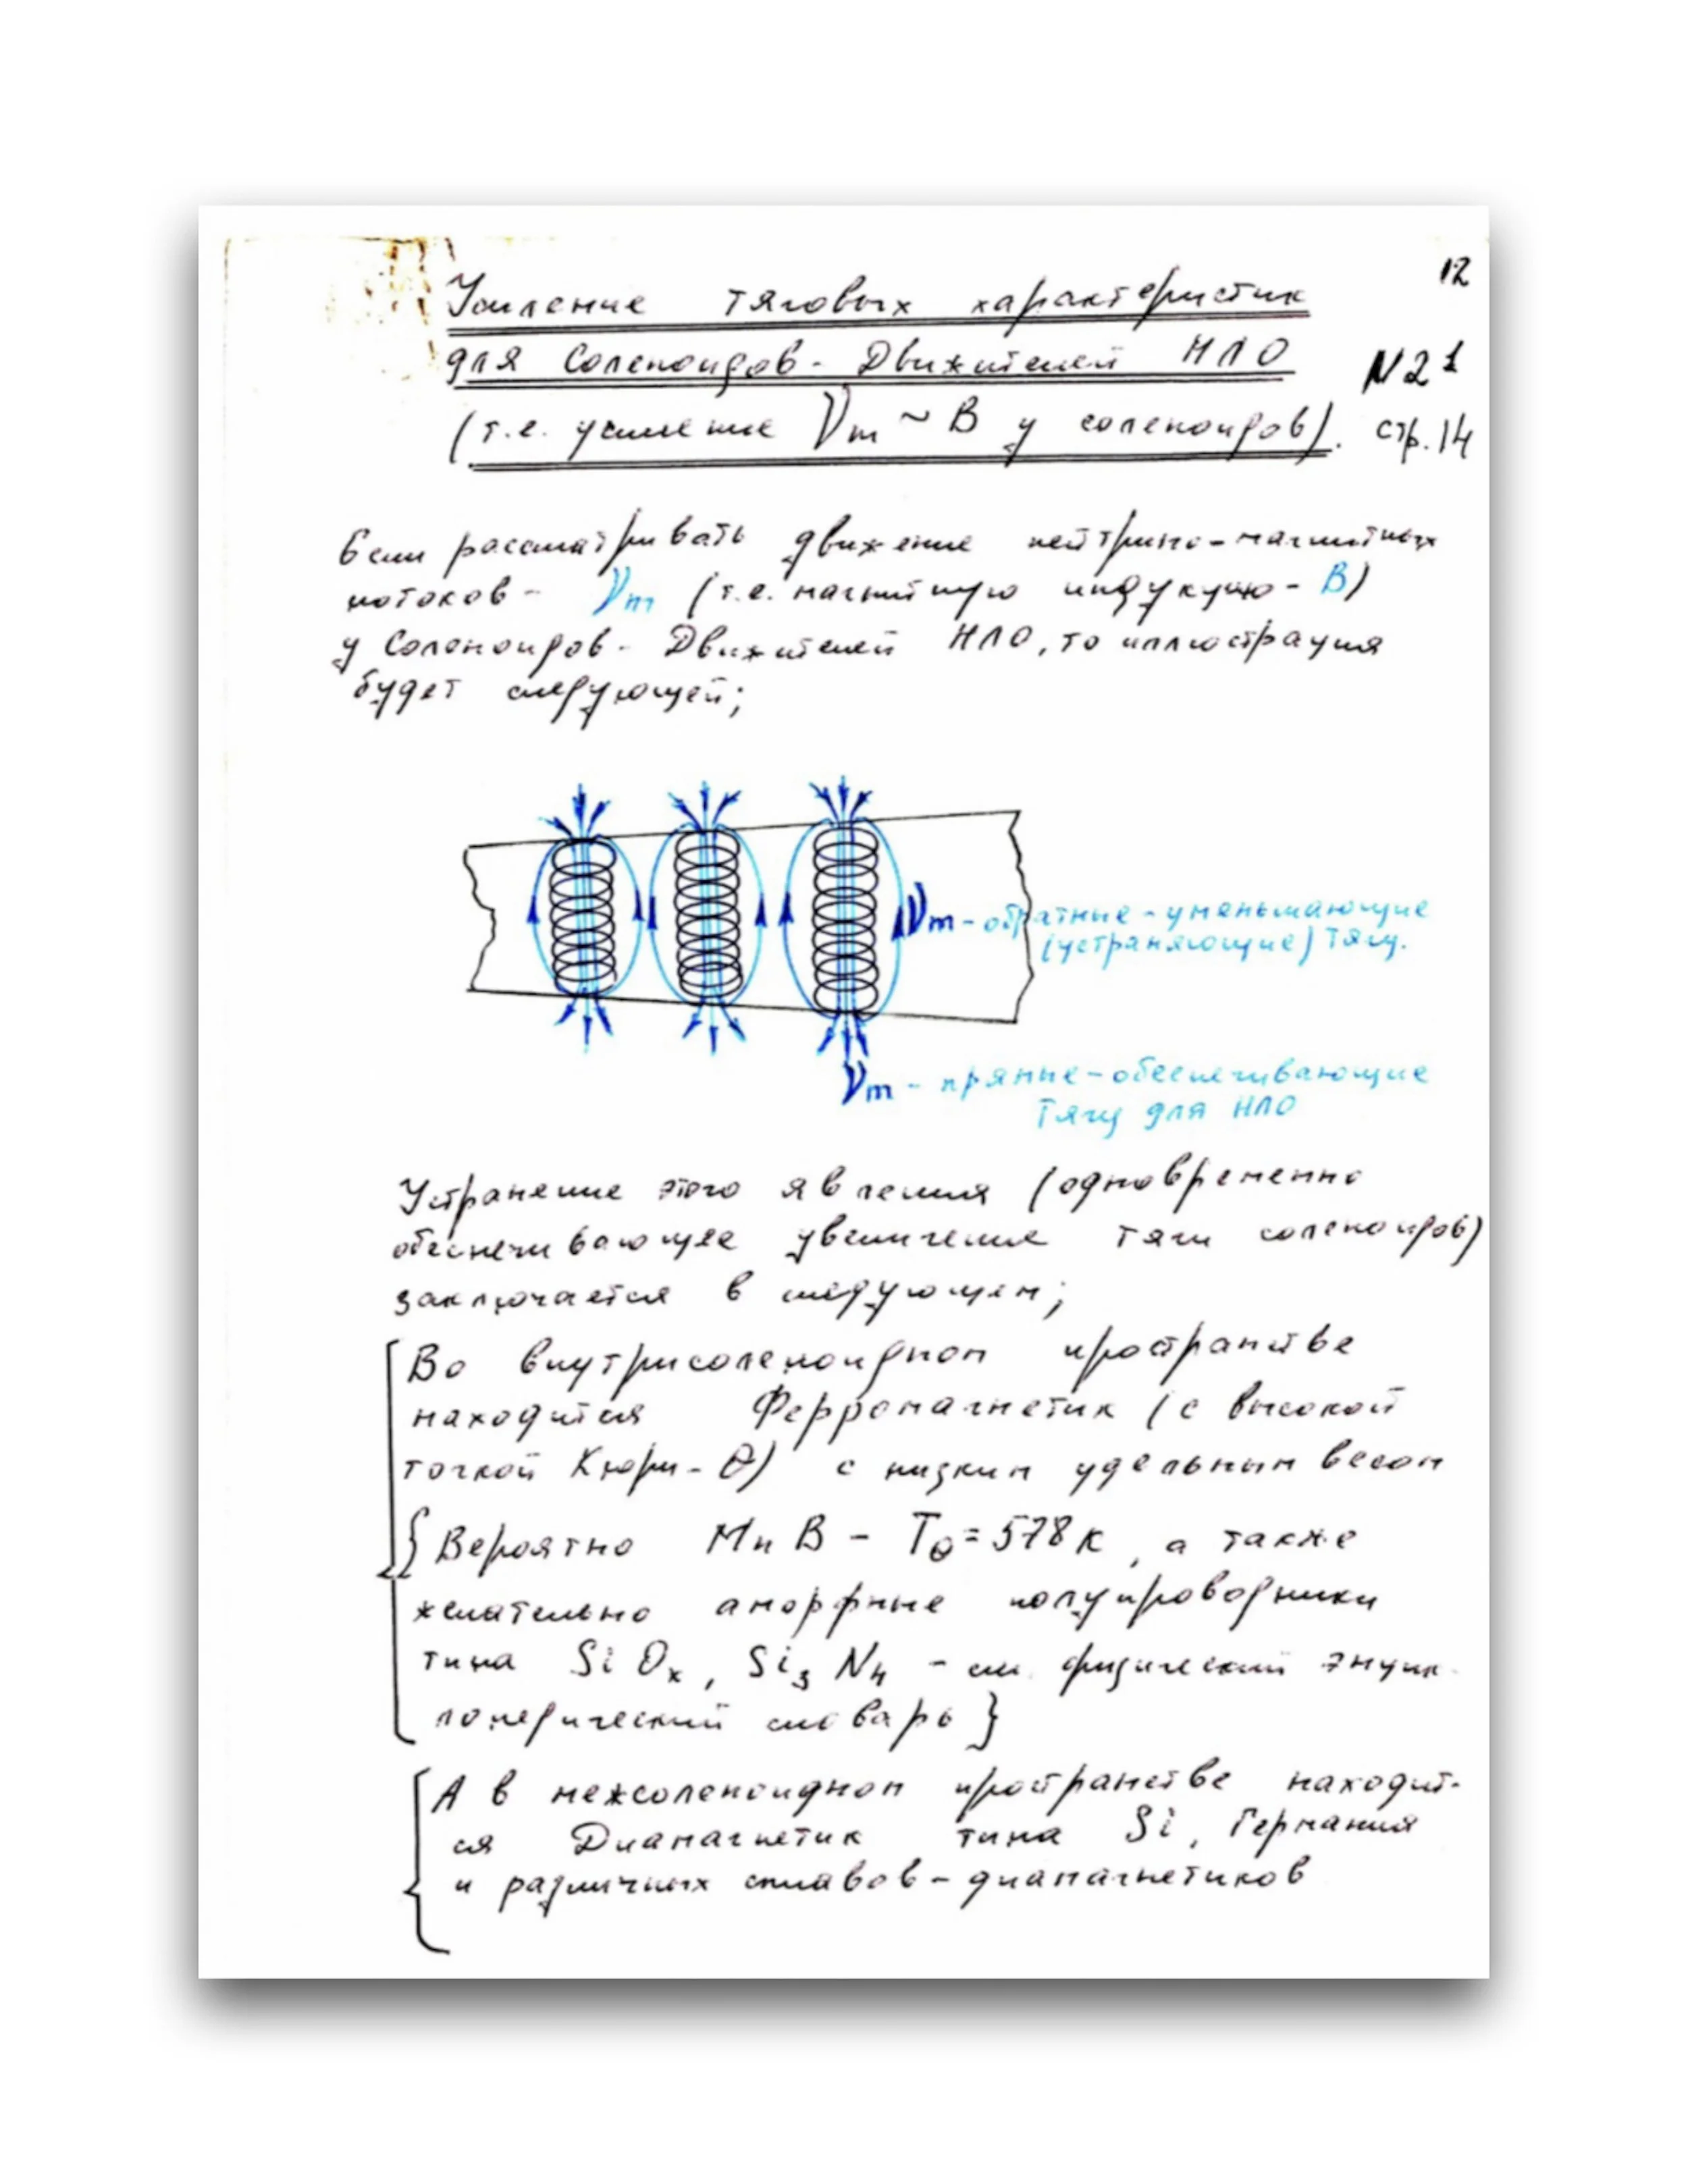 12
Усиление тяговых характеристик
для Соленоидов - Движителей НЛО
N2¹
(т.е. усиление νm ~ B у соленоидов).
стр. 14
Если рассматривать движение нейтрино-магнитных
потоков - νm (т.е. магнитную индукцию - B)
у Соленоидов - Движителей НЛО, то иллюстрация
будет следующей;
νm - обратные - уменьшающие
(устраняющие) тягу.
νm - прямые - обеспечивающие
тягу для НЛО
Устранение этого явления (одновременно
обеспечивающее увеличение тяги соленоидов)
заключается в следующем;
Во внутрисоленоидном пространстве
находится Ферромагнетик (с высокой
точкой Кюри - θ) с низким удельным весом
{Вероятно MnB - Tθ = 578 K, а также
желательно аморфные полупроводники
типа SiOx, Si3N4 - см. физический энцик-
лопедический словарь}
А в межсоленоидном пространстве находит-
ся Диамагнетик типа Si, Германия
и различных сплавов - диамагнетиков